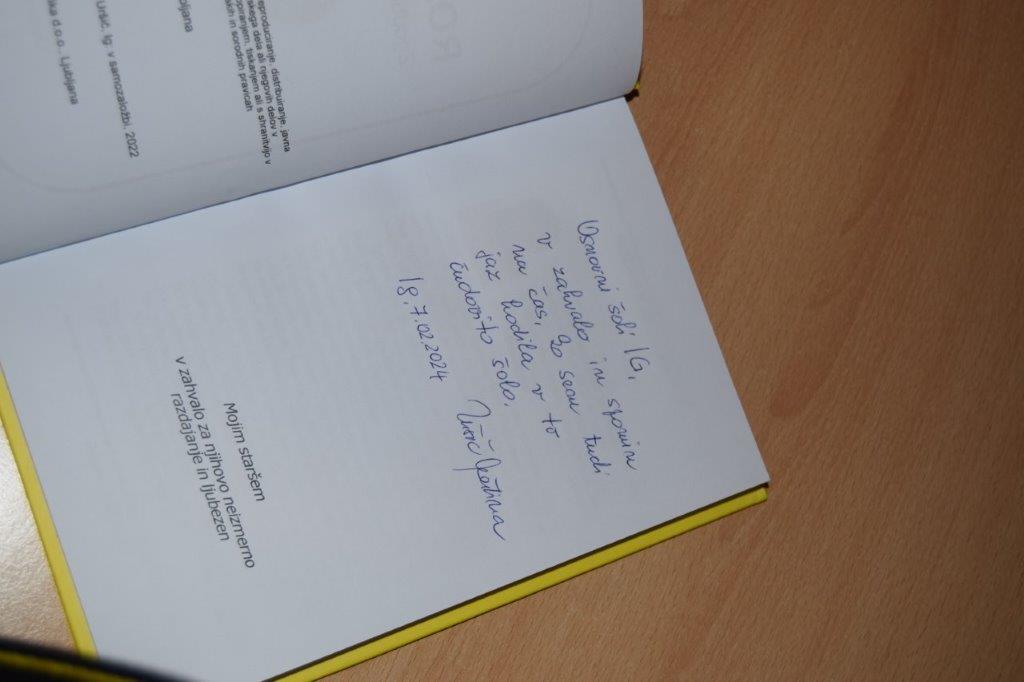 eproduciranje, distribuiranje, javna
skega dela ali njegovih delov v
opiranjem, tiskanjem ali s shranitvijo v
kih in sorodnih pravicah
oljana
Uršič, Ig: v samozaložbi, 2022
ika d.o.o., Ljubljana
Osnovni šoli IG,
v zahvalo in spomin
na čas, ko sem tudi
jaz hodila v to
čudovito šolo.
Uršič
Ig, 7.02.2024
Mojim staršem
v zahvalo za njihovo neizmerno
razdajanje in ljubezen